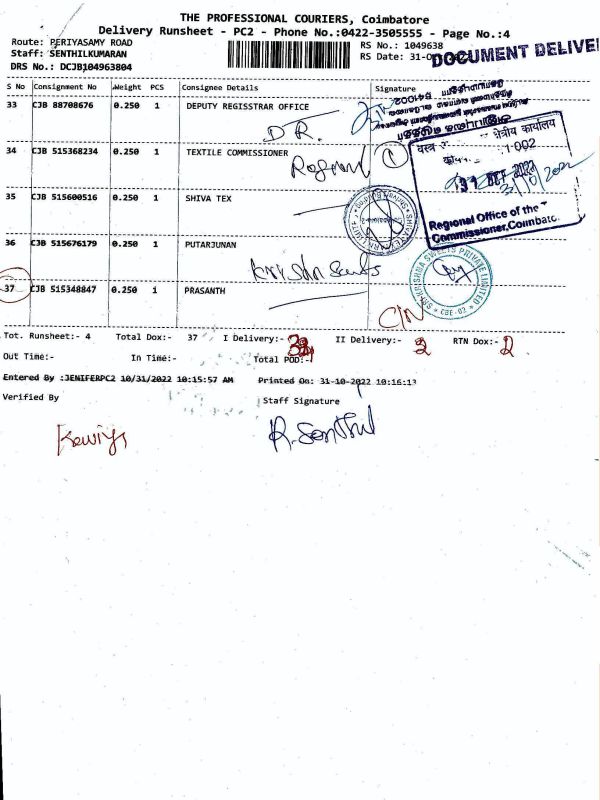 THE PROFESSIONAL COURIERS, Coimbatore
Delivery Runsheet - PC2 - Phone No.:0422-3505555 - Page No.:4
Route: PERIYASAMY ROAD
RS No.: 1049638
Staff: SENTHILKUMARAN
RS Date: 31-
DOCUMENT DELIVE
DRS No.: DCJB104963804
S No Consignment No Weight PCS Consignee Details Signature
33 CJB 88708676 0.250 1 DEPUTY REGISSTRAR OFFICE
D R.
34 CJB 515368234 0.250 1 TEXTILE COMMISSIONER
क्षेत्रीय कार्यालय
31 OCT 2022
31/10/2022
Regional Office of the
Commissioner, Coimbato
35 CJB 515600516 0.250 1 SHIVA TEX
36 CJB 515676179 0.250 1 PUTARJUNAN
SRI KRISHNA SWEETS PRIVATE LIMITED
* CBE-02 *
37 CJB 515348847 0.250 1 PRASANTH
C/N
Tot. Runsheet:- 4 Total Dox:- 37 I Delivery:- II Delivery:- RTN Dox:- 2
Out Time:- In Time:- Total POD:-
Entered By :JENIFERPC2 10/31/2022 10:15:57 AM Printed On: 31-10-2022 10:16:13
Verified By Staff Signature
R. Senthil